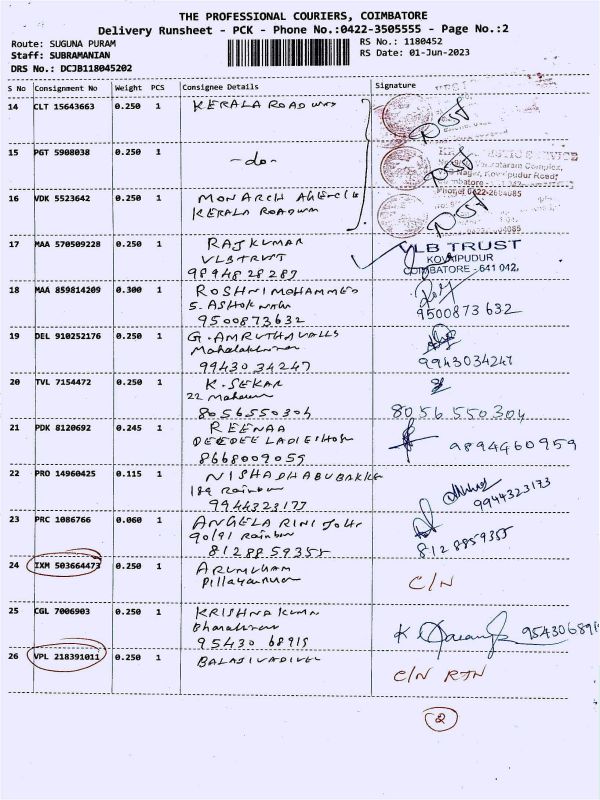 THE PROFESSIONAL COURIERS, COIMBATORE
Delivery Runsheet - PCK - Phone No.:0422-3505555 - Page No.:2
Route: SUGUNA PURAM
RS No.: 1180452
Staff: SUBRAMANIAN
RS Date: 01-Jun-2023
DRS No.: DCJB118045202
S No Consignment No Weight PCS Consignee Details Signature
14 CLT 15643663 0.250 1 KERALA ROADWAYS
15 PGT 5908038 0.250 1 -do-
16 VDK 5523642 0.250 1 MONARCH AGENCIE
KERALA ROADWAY
Phone: 0422-2604085
17 MAA 570509228 0.250 1 RAJKUMAR
VLB TRUST
9894828287
VLB TRUST
KOVAIPUDUR
COIMBATORE - 641 042.
18 MAA 859814209 0.300 1 ROSHNI MOHAMMED
5. ASHOK NAGAR
9500873632
9500873632
19 DEL 910252176 0.250 1 G. AMRUTHAVALLS
99430 34247
9943034247
20 TVL 7154472 0.250 1 K. SEKAR
22
8056550304
8056550304
21 PDK 8120692 0.245 1 REENAA
DEEDEE LADIES HOS
8668009059
9894460959
22 PRO 14960425 0.115 1 NISHADHABUBAKKE
184 Rainbow
9944323173
9944323173
23 PRC 1086766 0.060 1 ANGELA RINI JOHN
90/91 Rainbow
8128859355
8128859355
24 IXM 503664473 0.250 1 ARUMUHAM
C/N
25 CGL 7006903 0.250 1 KRISHNAKUMA
95430 68919
K 9543068919
26 VPL 218391011 0.250 1 BALAJIVADIVEL
C/N RTN
2